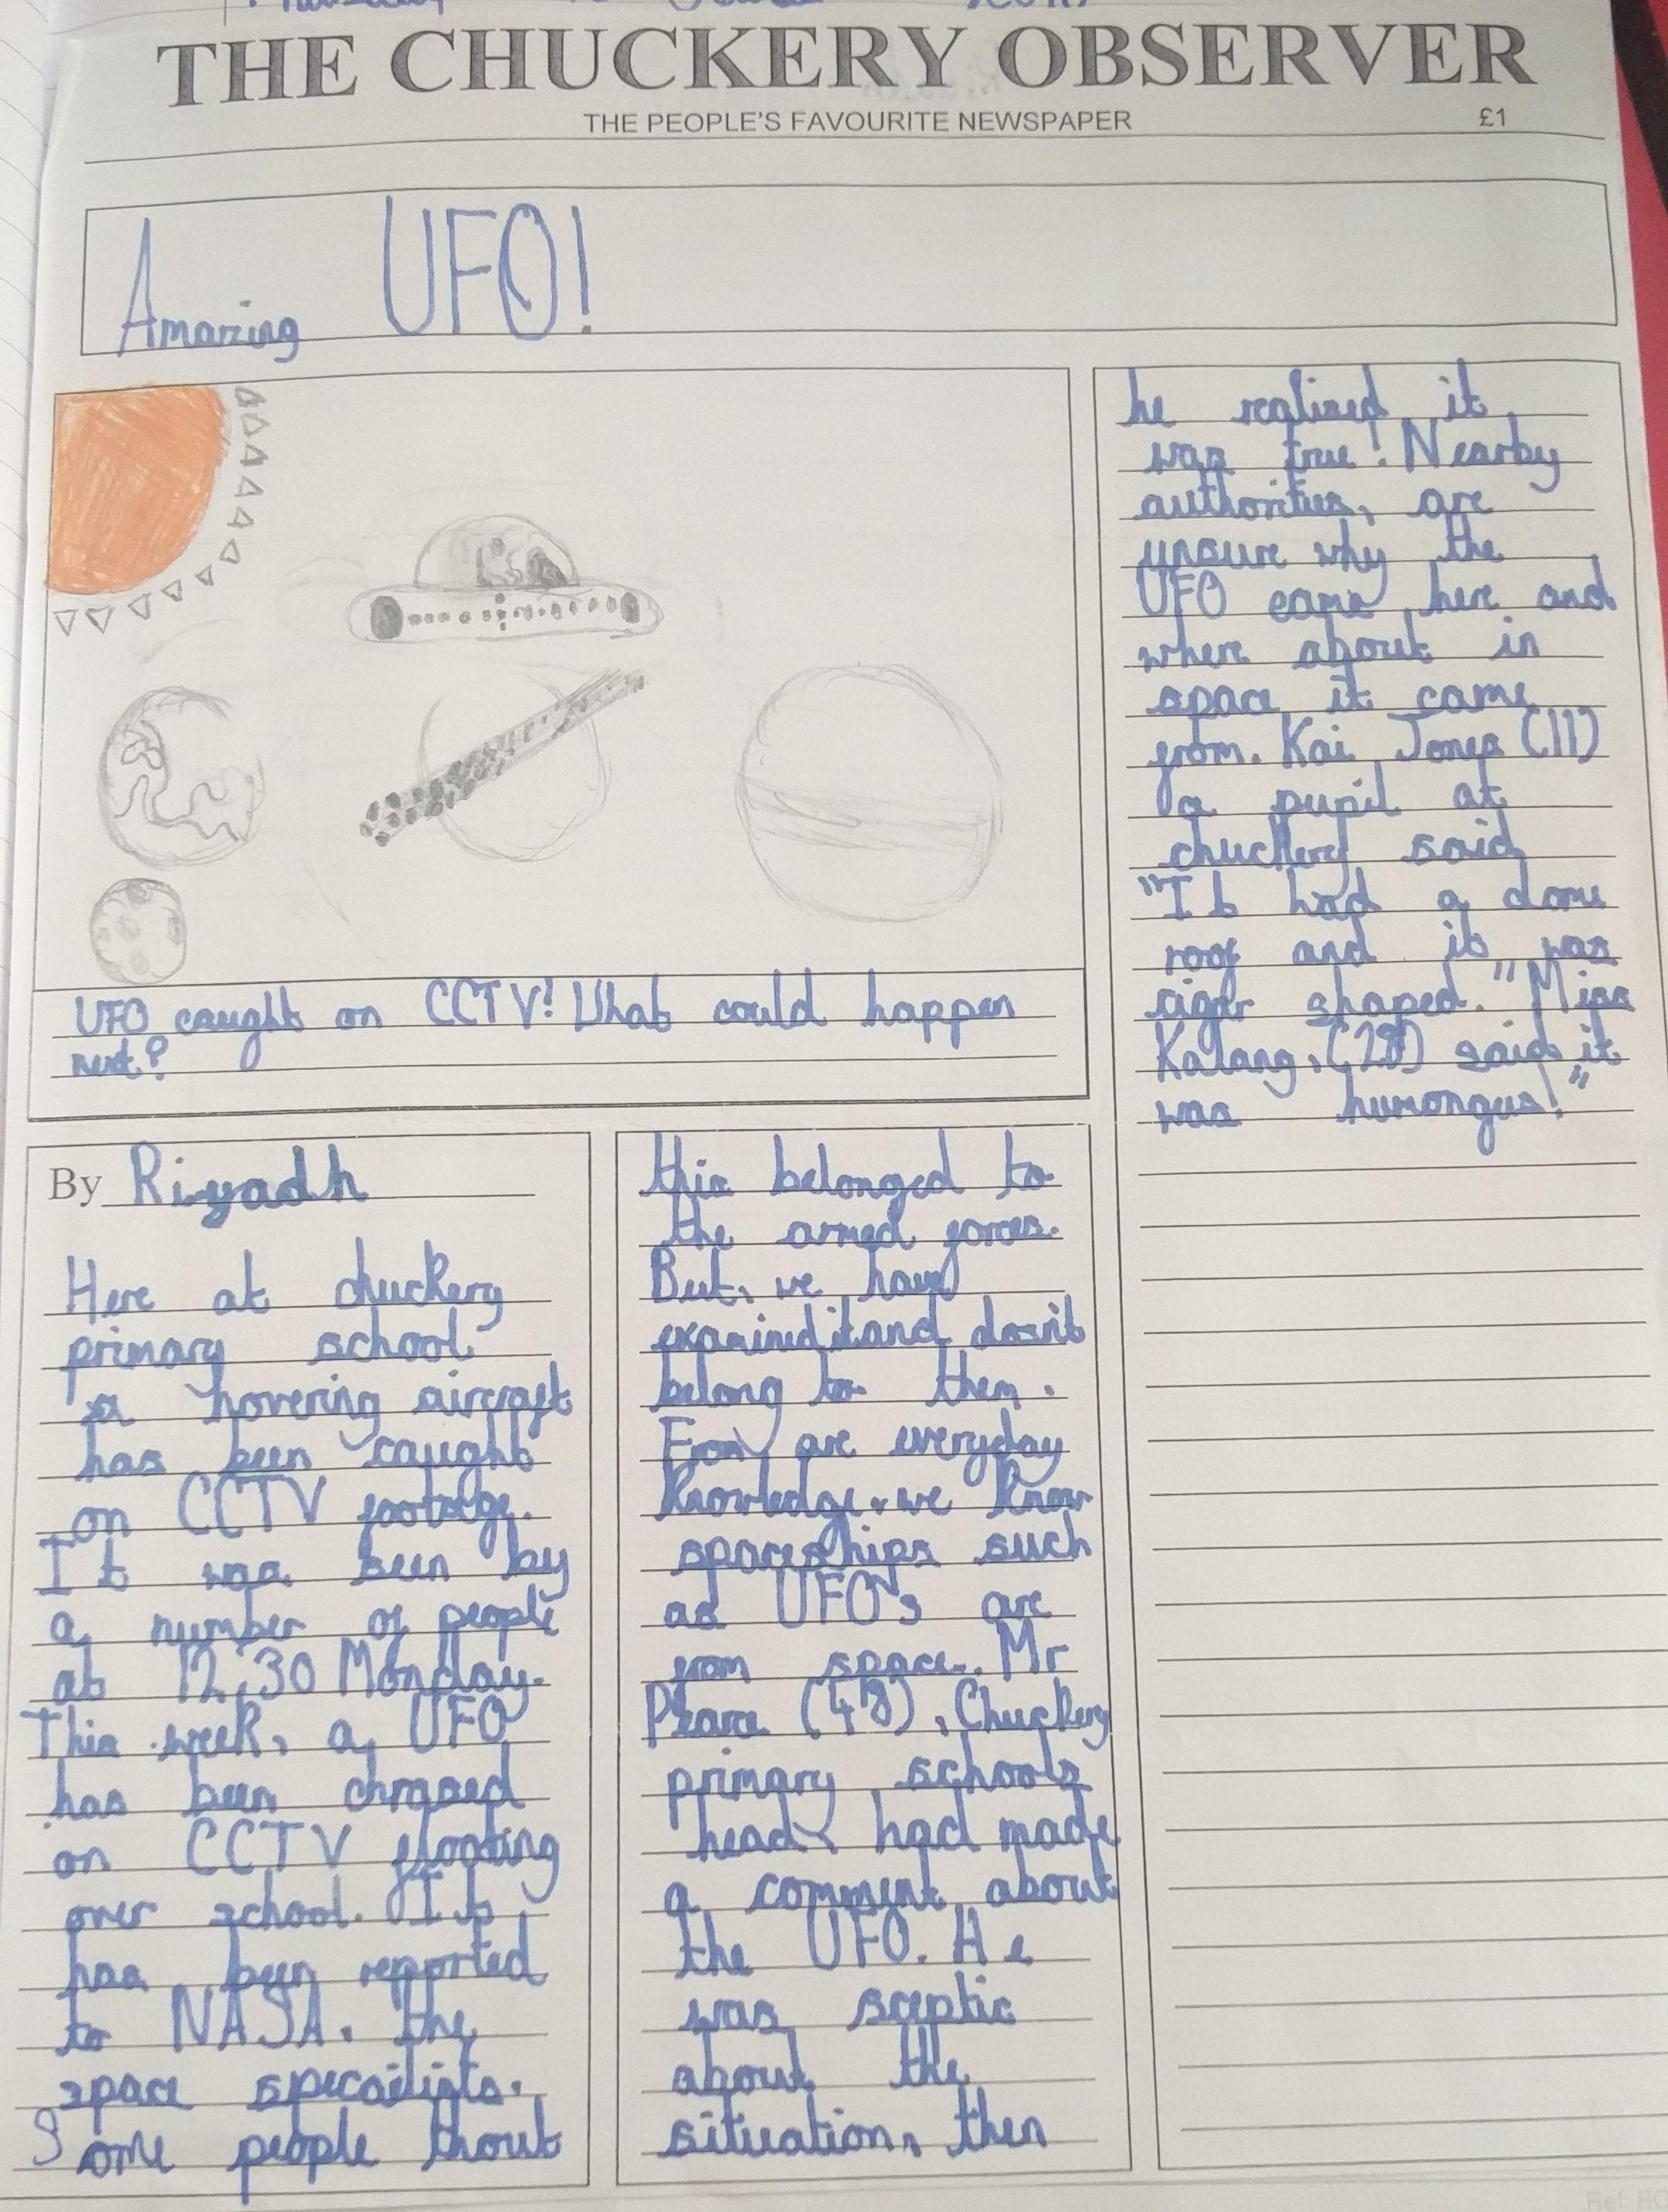 THE CHUCKERY OBSERVER
THE PEOPLE'S FAVOURITE NEWSPAPER £1
Amazing UFO!
UFO caught on CCTV! What could happen
next?
By Riyadh
Here at chuckery
primary school
a hovering aircraft
has been caught
on CCTV footage.
It was seen by
a number of people
at 12:30 Monday.
This week, a UFO
has been
on CCTV floating
over school. It
has been reported
to NASA. the
space specailists.
Some people thout
this belonged to
the armed forces.
But, we have
examined it and dosn't
belong to them.
From are everyday
Knowledge, we know
spaceships such
as UFO's are
from space. Mr
(48), Chuckery
primary schools
head, had made
a comment about
the UFO. He
was sceptic
about the
situation, then
he realised it
was true! Nearby
authorities, are
unsure why the
UFO came here and
where about in
space it came
from. Kai Jones (11)
a pupil at
chuckery said
"It had a dome
roof and it was
cigar shaped." Miss
Kalang, (28) said it
was humongus!"